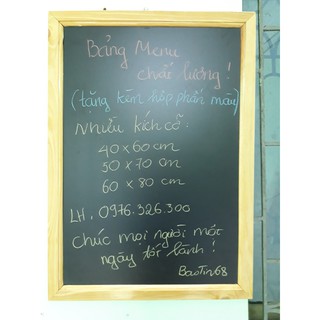 Bảng Menu
chất lượng !
(tặng kèm hộp phấn màu)
Nhiều kích cỡ :
40 x 60 cm
50 x 70 cm
60 x 80 cm
LH . 0976.326.300
Chúc mọi người một
ngày tốt lành !
BaoTin68